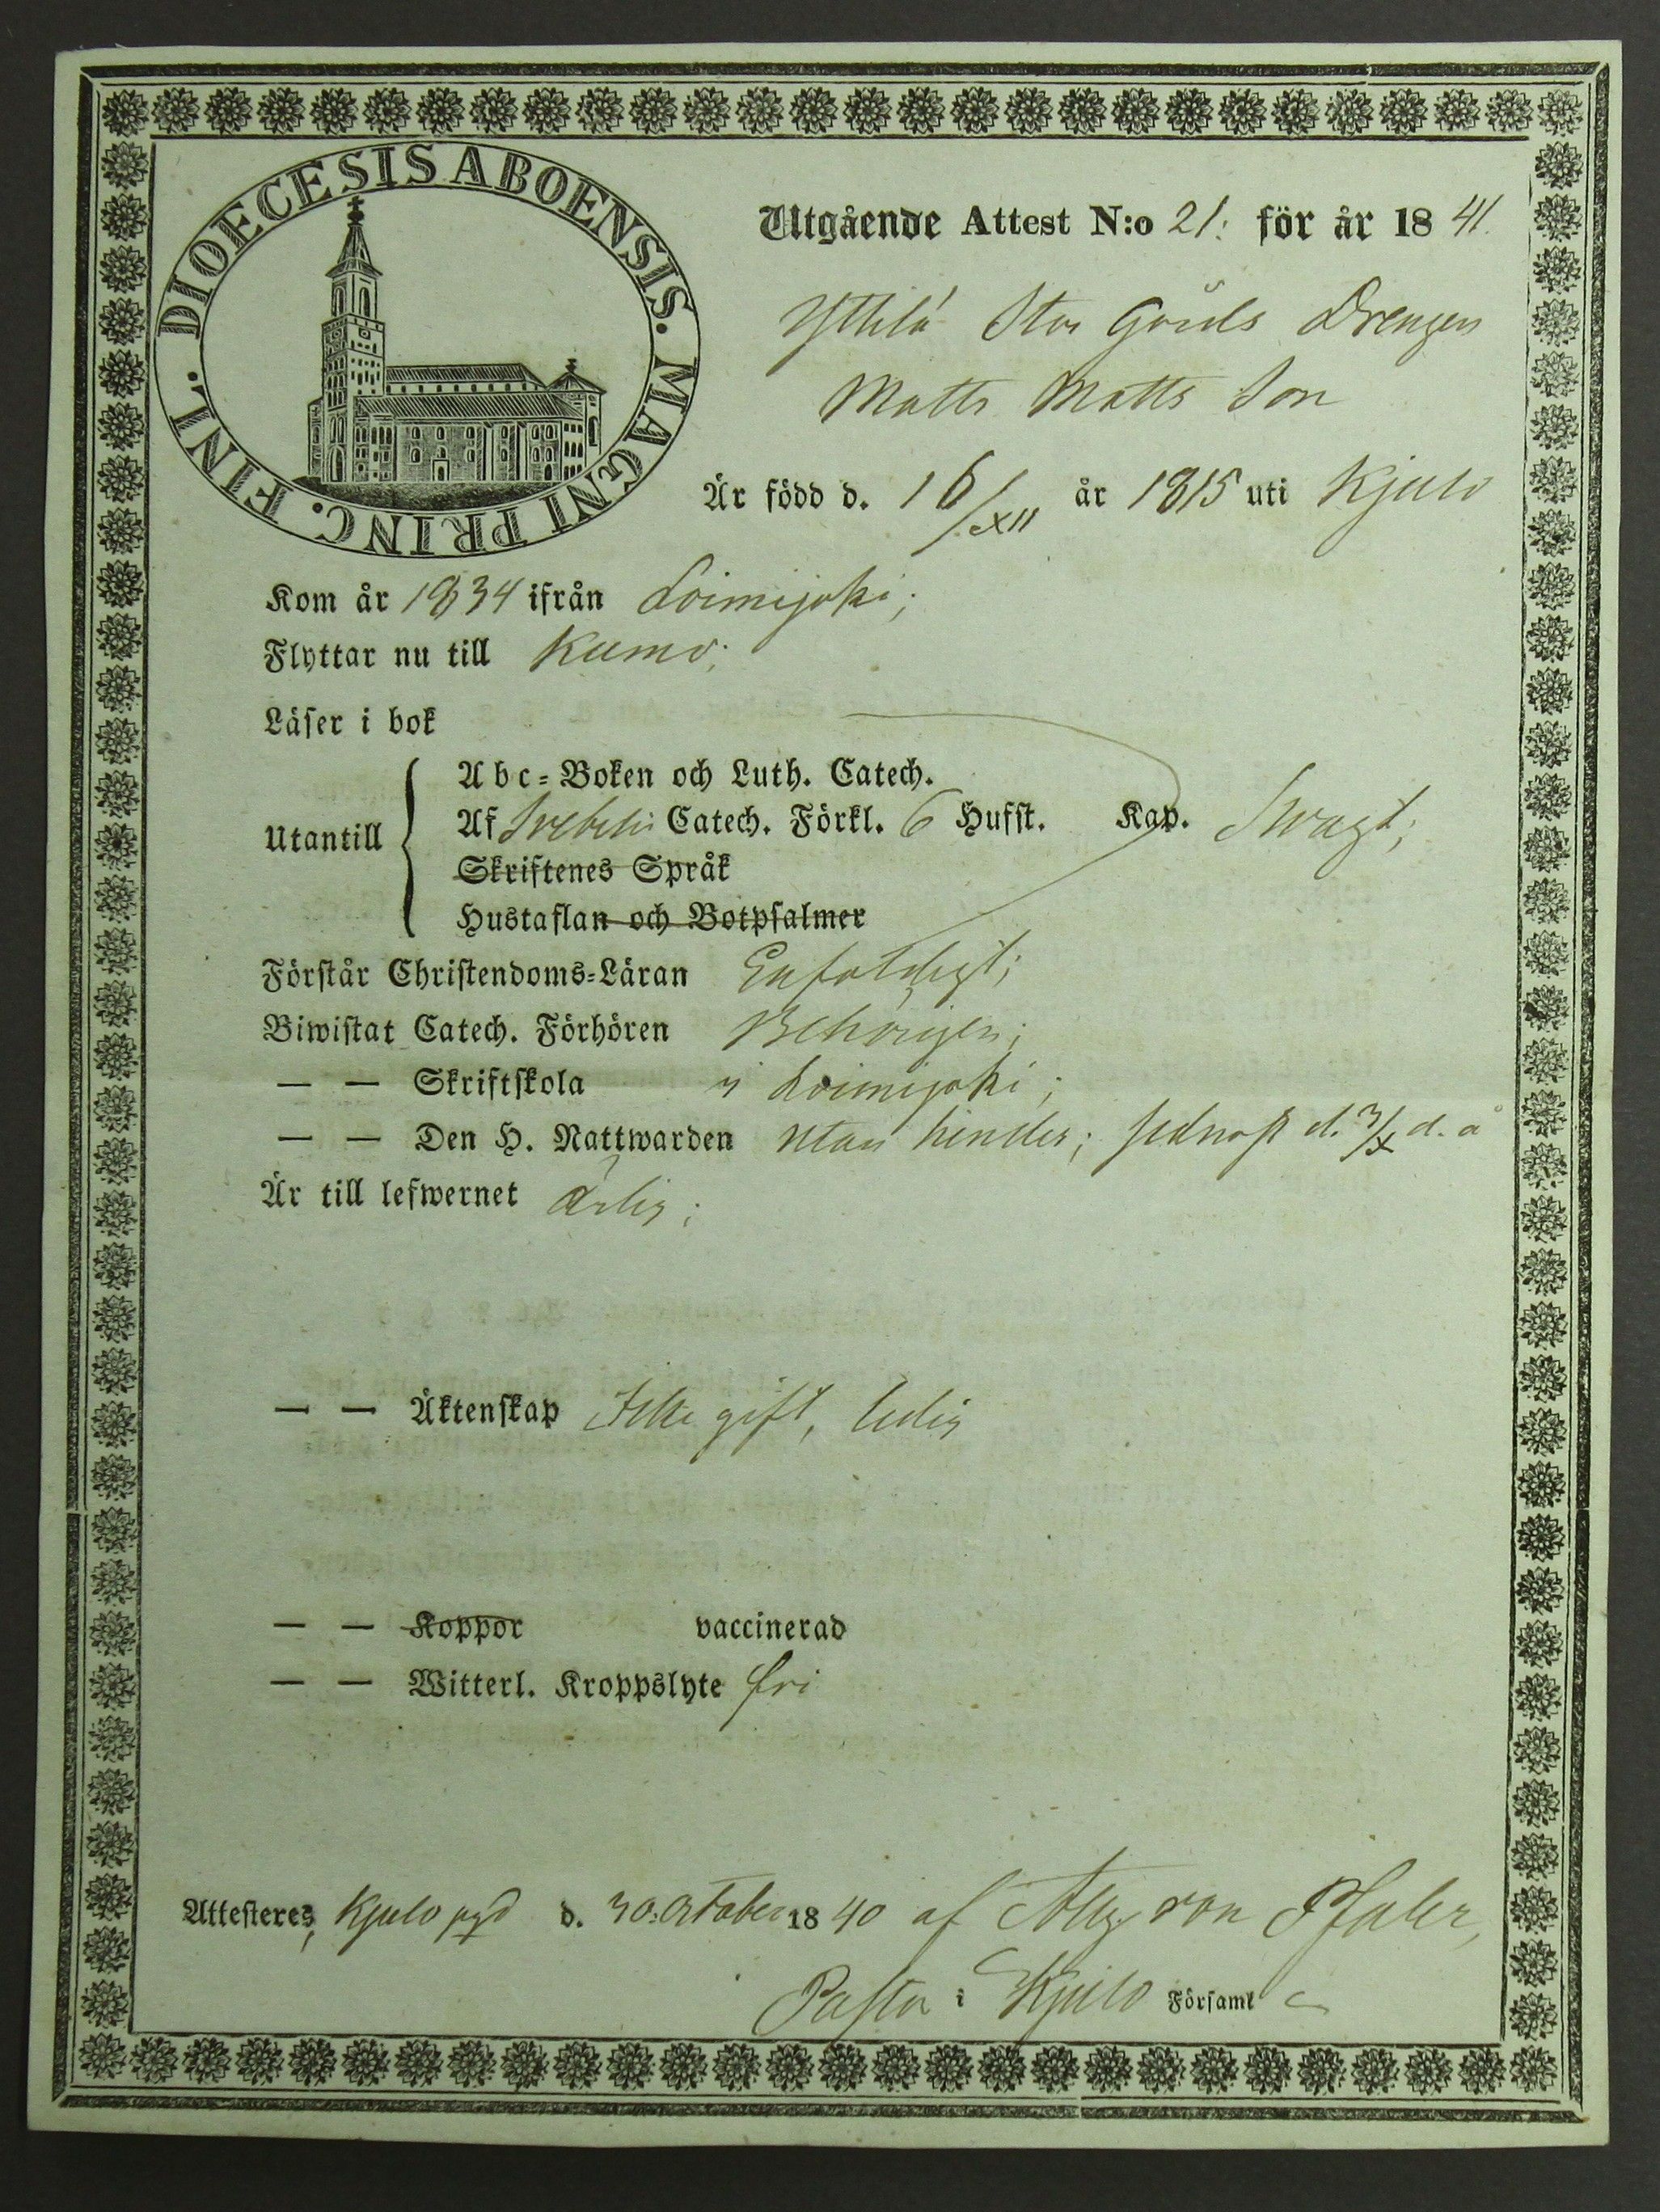 DIOECESIS ABOENSIS. MAGNI PRINC. FINL.
Utgående Attest N:o 21. för år 1841.
Yttilä Stor Gårds Drengen
Matts Matts Son
Är född d. 16/XII år 1815 uti Kjulo
Kom år 1834 ifrån Loimijoki;
Flyttar nu till Kumo;
Läser i bok
Utantill
Abc=Boken och Luth. Catech.
Af Svebelii Catech. Förkl. 6 Hufst. Kap. Swagt;
Skriftenes Språk
Hustaflan och Botpsalmer
Förstår Christendoms=Läran Enfaldigt;
Biwistat Catech. Förhören Behörigen;
— — Skriftskola i Loimijoki;
— — Den H. Nattwarden utan hinder; sednast d. 3/X d. å
Är till lefwernet ärlig;
— — Äktenskap Icke gift, ledig
— — Koppor vaccinerad
— — Witterl. Kroppslyte fri
Attesteres, Kjulo d. 30. October 1840 af von Pfaler,
Pastor i Kjulo Församl